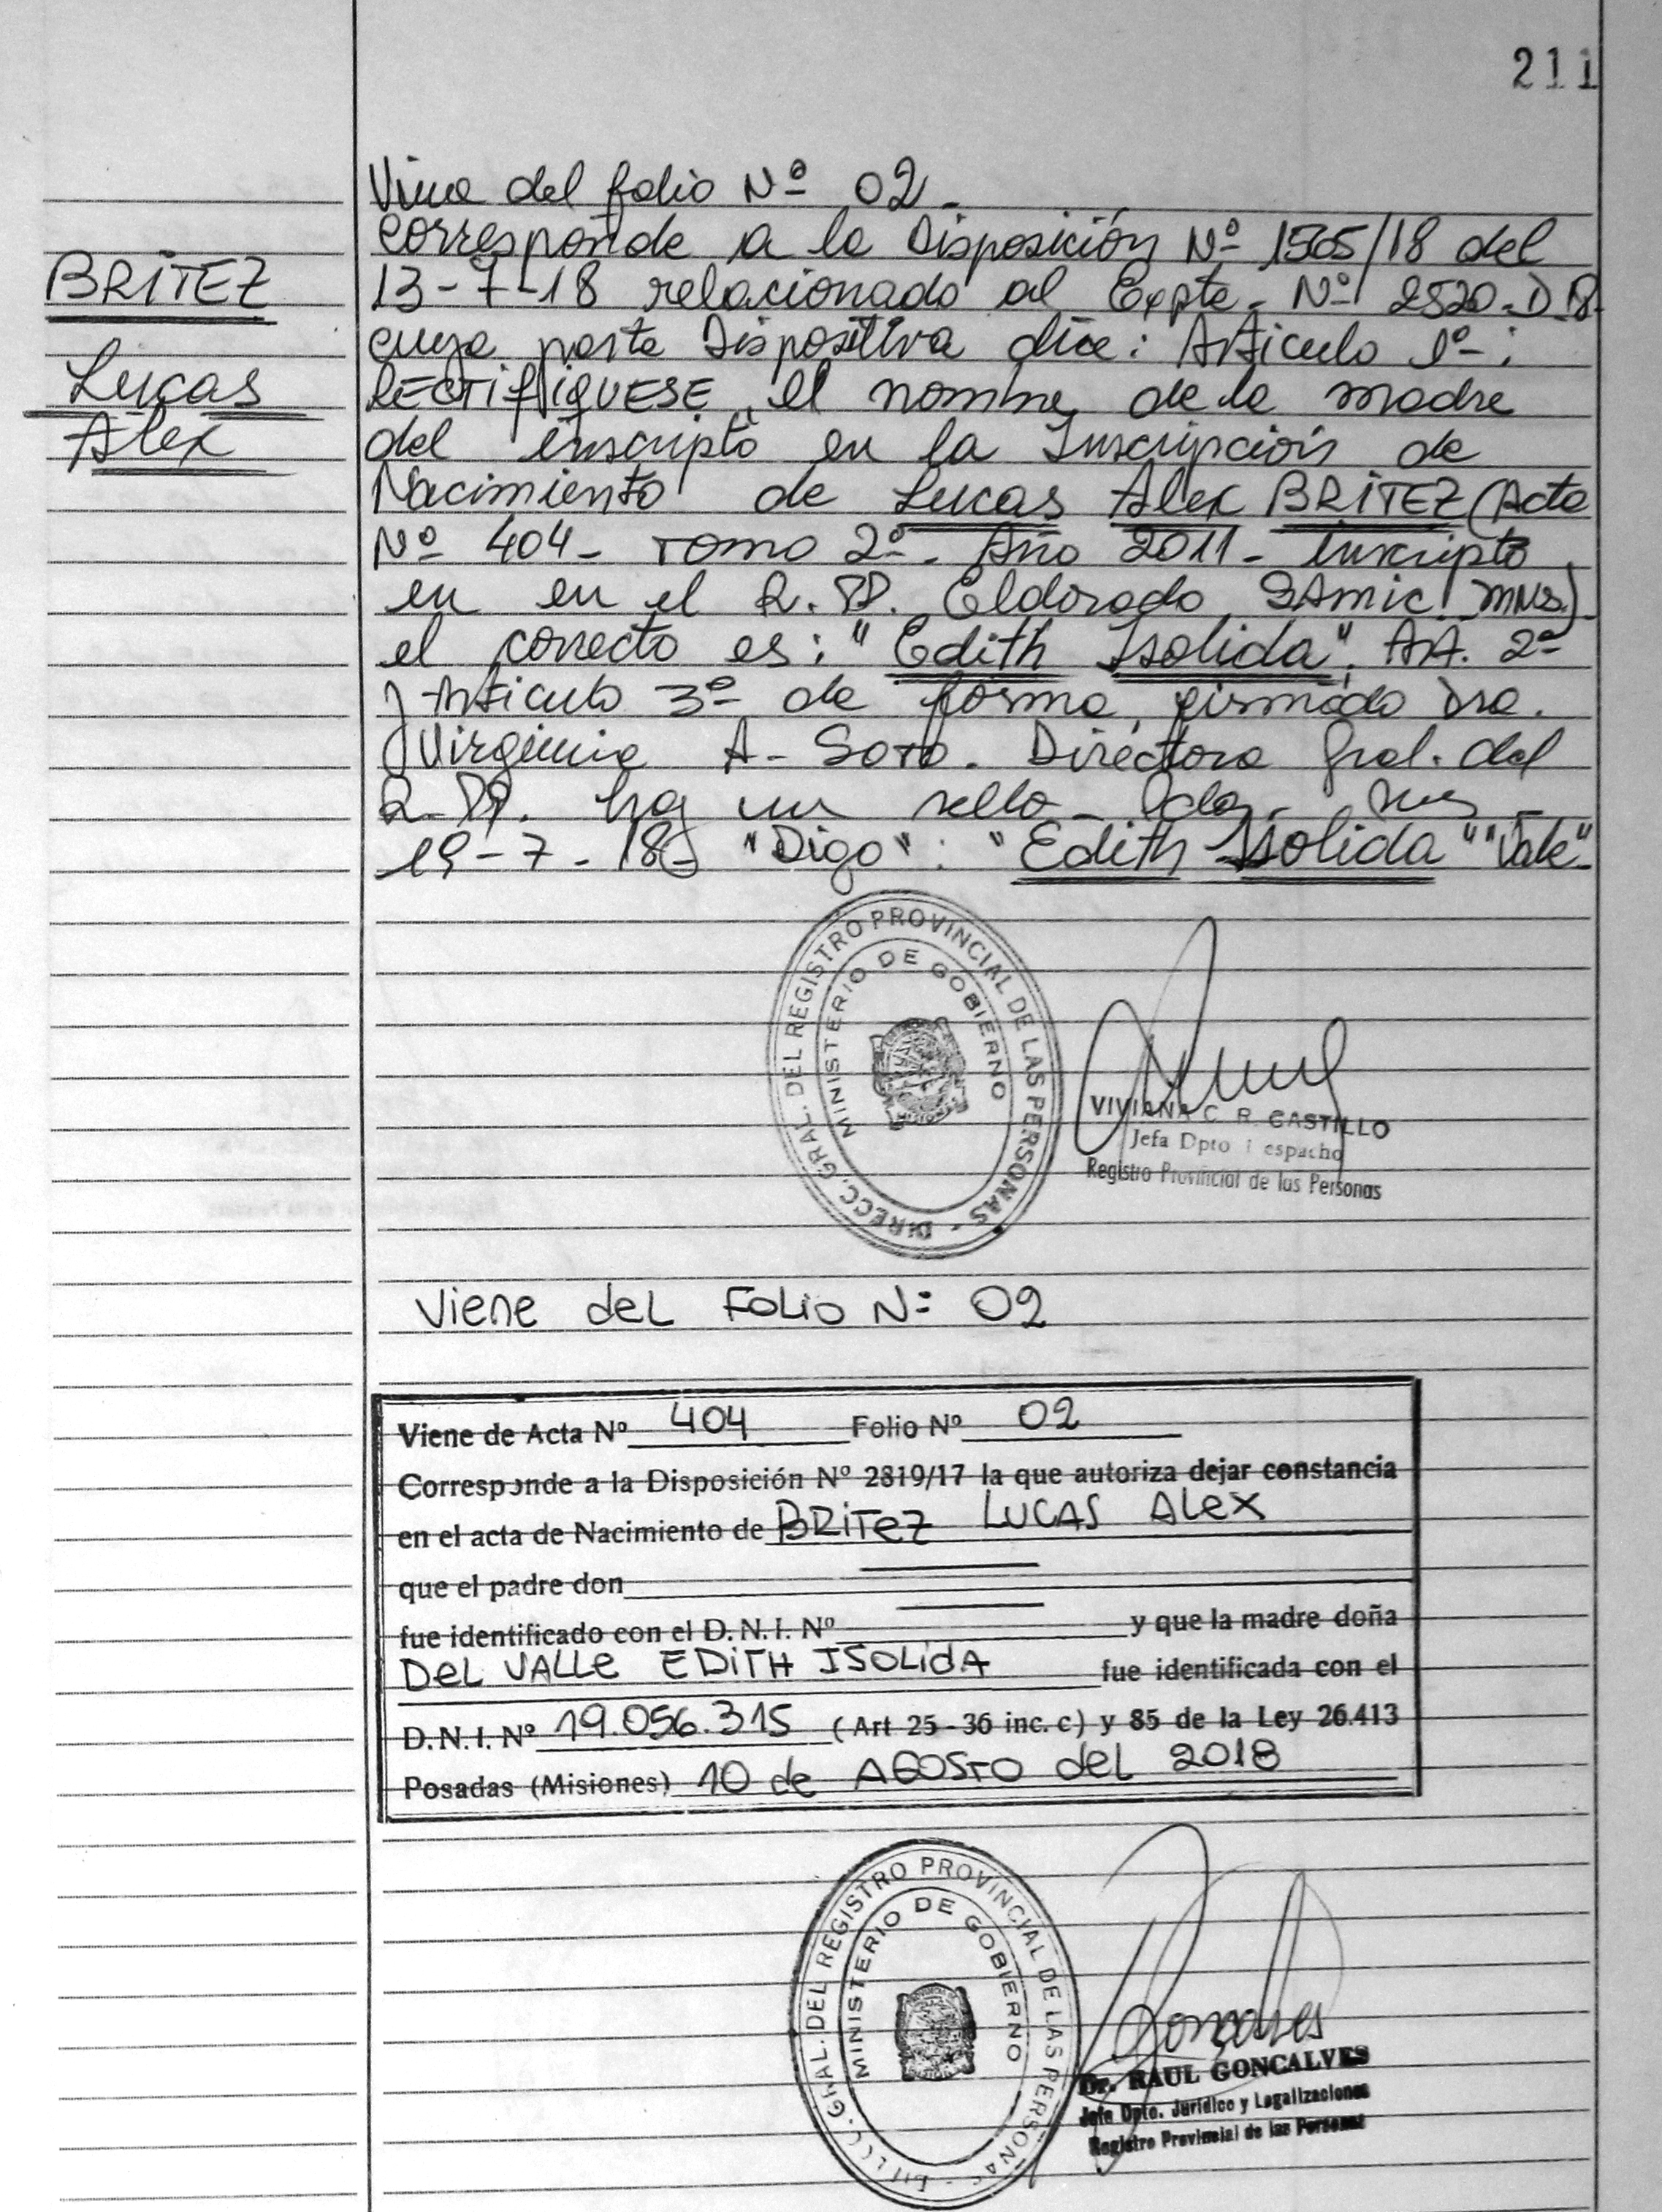 211
BRITEZ
Lucas
Alex
Viene del folio Nº 02.
Corresponde a la Disposición Nº 1565/18 del
13-7-18 relacionado al Expte. Nº 2520-D-18
cuya parte Dispositiva dice: Articulo 1º:
RECTIFIQUESE el nombre de la madre
del inscripto en la Inscripción de
Nacimiento de Lucas Alex BRITEZ (Acta
Nº 404- Tomo 2º- Año 2011- Inscripto
en en el R.PP. Eldorado SAmic Mns.)
el correcto es: "Edith Isolida". Art. 2º
y Articulo 3º de forma, firmado Dra.
Virginia A. Soto. Directora Gral. del
R.PP. hay un sello- Pdas. Mns
19-7-18 "Digo": "Edith Isolida" "Vale"
DIRECC. GRAL. DEL REGISTRO PROVINCIAL DE LAS PERSONAS -
MINISTERIO DE GOBIERNO
VIVIANA C. R. CASTILLO
Jefa Dpto espacho
Registro Provincial de las Personas
Viene del Folio Nº 02
Viene de Acta Nº 404 Folio Nº 02
Corresponde a la Disposición Nº 2819/17 la que autoriza dejar constancia
en el acta de Nacimiento de BRITEZ LUCAS ALEX
que el padre don
fue identificado con el D.N.I. Nº y que la madre doña
DEL VALLE EDITH ISOLIDA fue identificada con el
D.N.I. Nº 19.056.315 (Art 25-36 inc. c) y 85 de la Ley 26.413
Posadas (Misiones) 10 de AGOSTO del 2018
DIRECC. GRAL. DEL REGISTRO PROVINCIAL DE LAS PERSONAS -
MINISTERIO DE GOBIERNO
Goncalves
Dr. RAUL GONCALVES
Jefe Dpto. Jurídico y Legalizaciones
Registro Provincial de las Personas